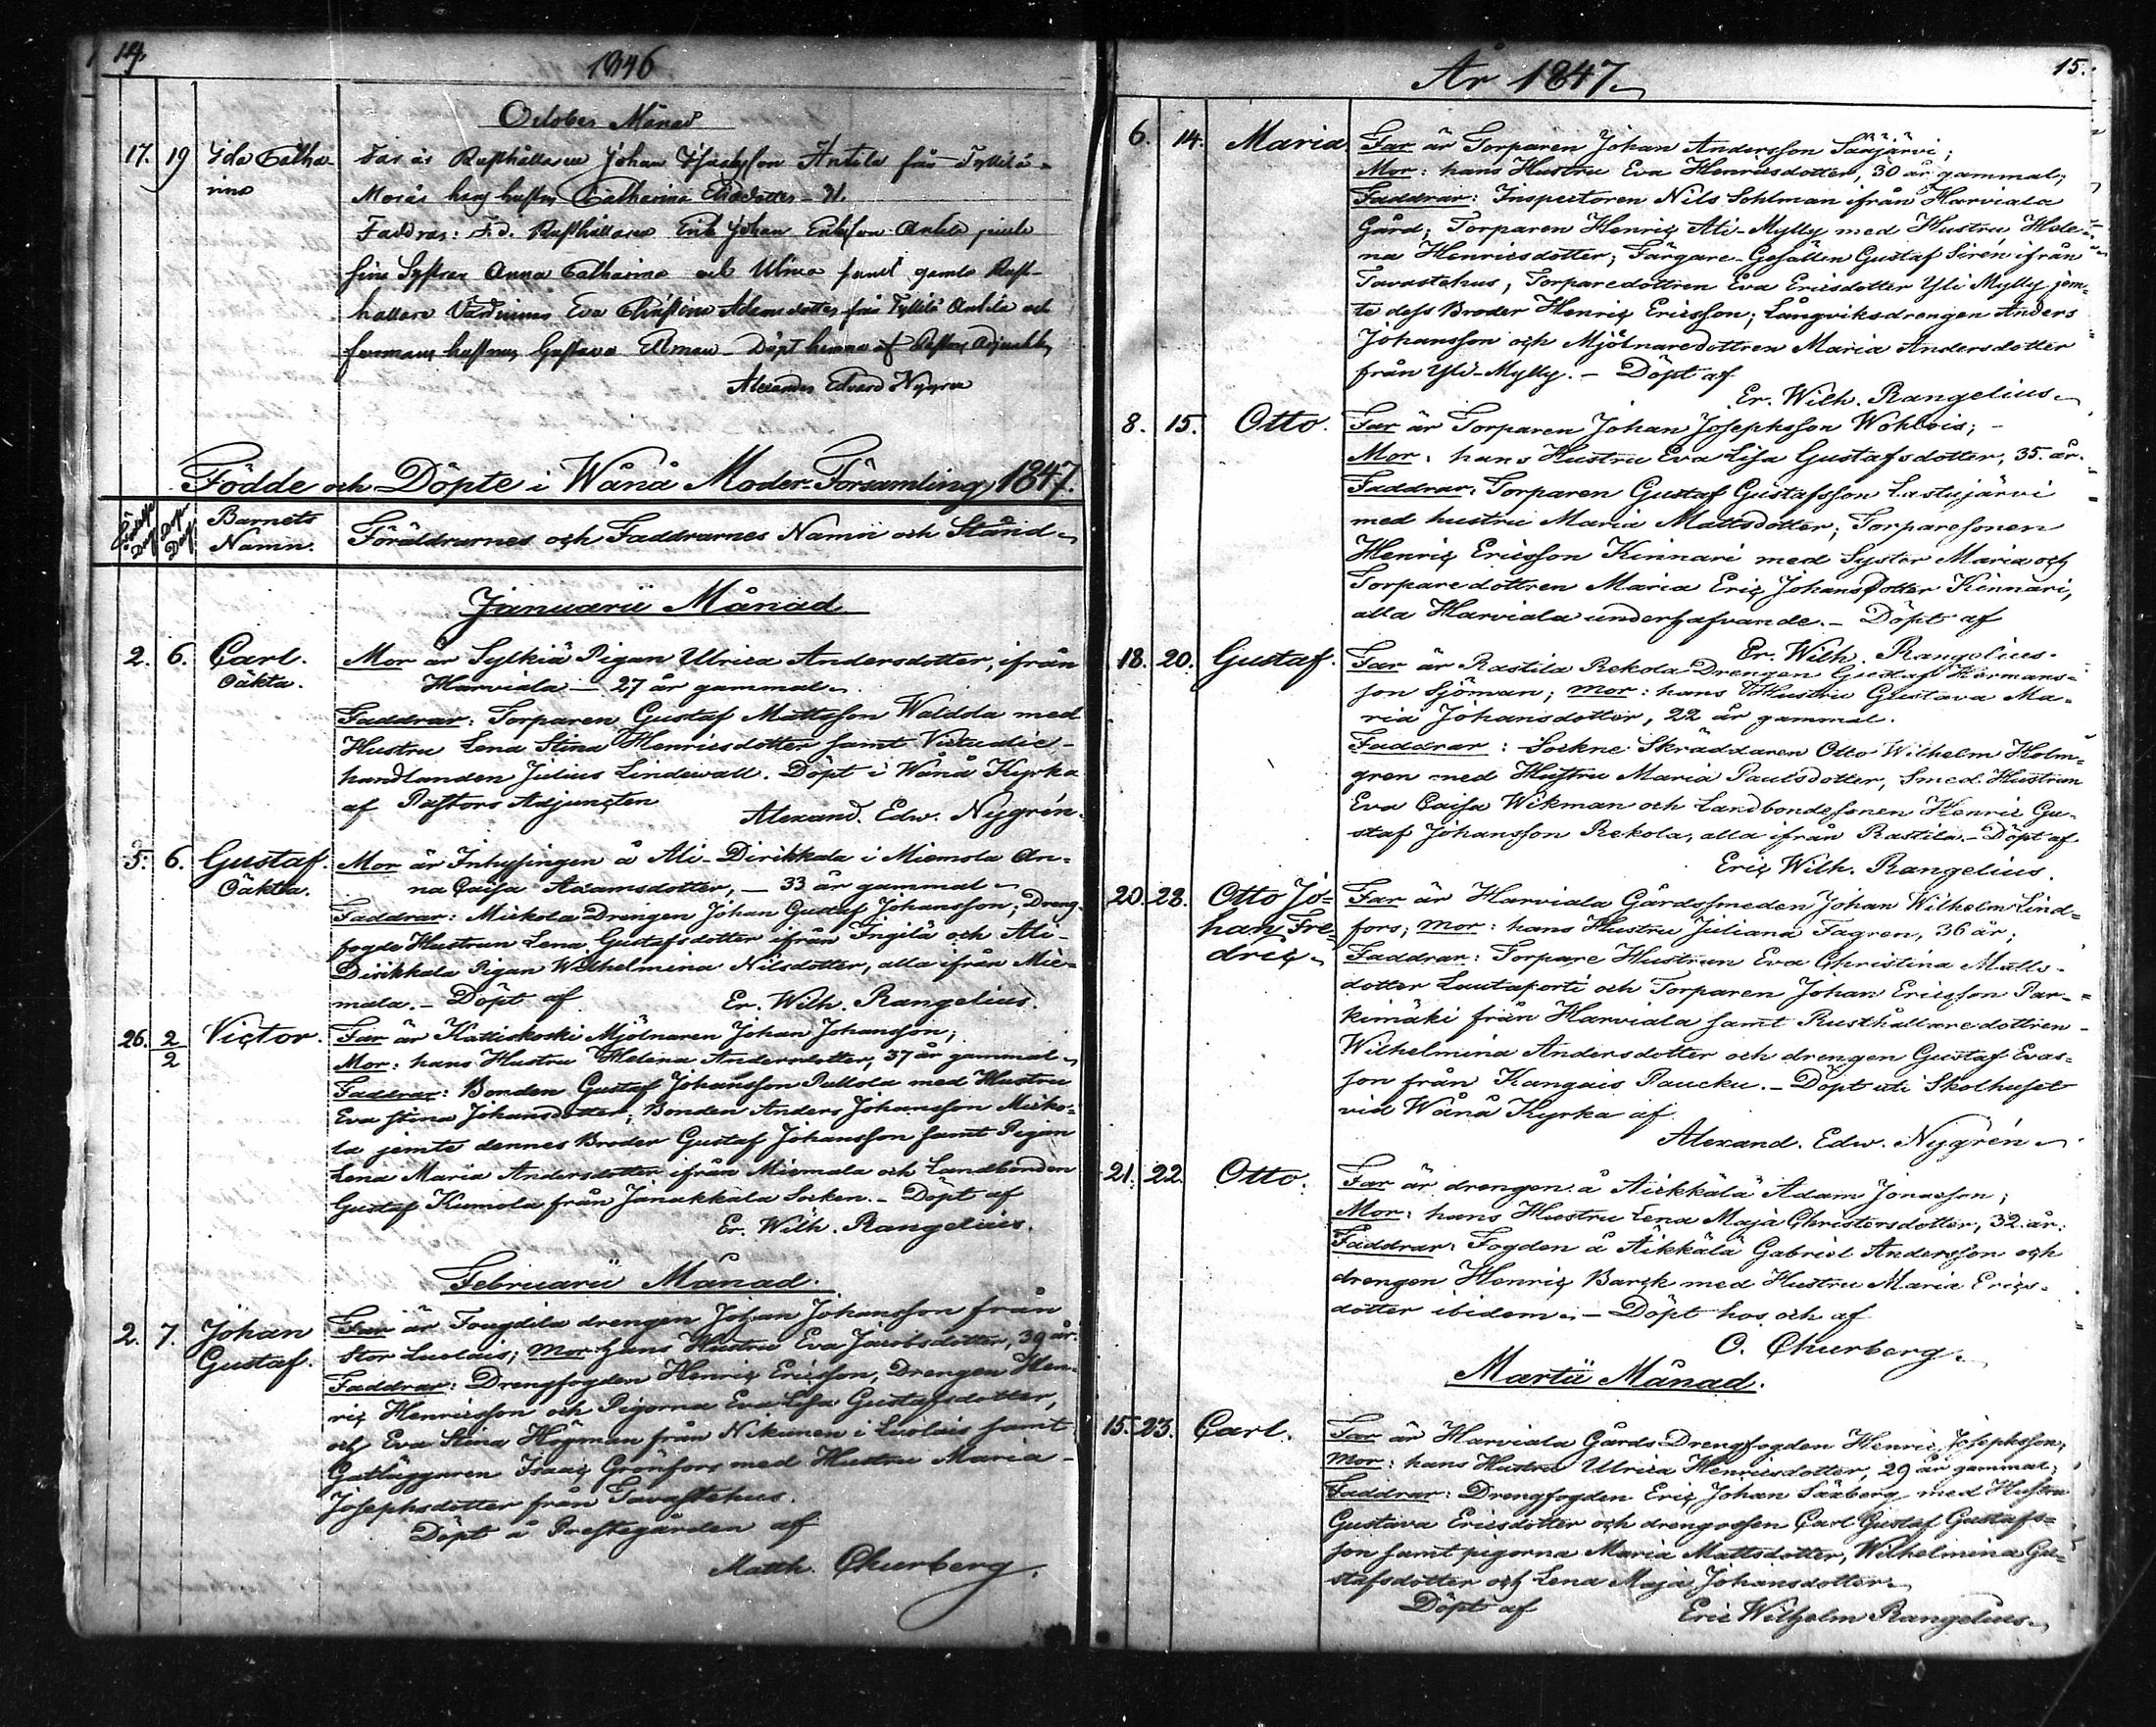 14.
1846
October Månad
17. 19 Ida Catha- Far är Rusthållaren Johan Antila från Tyllilä
rina Mor är hans hustru Catharina 31.
Faddrar: F.d. Rusthållaren Erik Johan Eriksson Antila jemte
sine Systrar Anna Catharina och Ulrica samt gamla Rust-
hållare Värdinnan Eva Christina Adamsdotter från Tyllilä Antila och
hustrun Gustava Ellman Döpt hemma af Pastors Adjunkten
Alexander Edvard Nygren
Födde och Döpte i Wånå Moder-Församling 1847.
Födelse Dag Döpe Dag Barnets Namn. Föräldrarnes och Faddrarnes Namn och Stånd
Januarii Månad
2. 6. Carl. Mor är Sylkiä Pigan Ulrica Andersdotter, ifrån
Oäkta. Harviala — 27 år gammal.
Faddrar: Torparen Gustaf Mattsson Waldda med
Hustru Lena Stina Henricsdotter samt Victualie-
handlanden Julius Lindewall. Döpt i Wånå Kyrka
af Pastors Adjuncten
Alexand. Edw. Nygrén.
5. 6. Gustaf. Mor är Inhysingen å Ali-Dirikkala i Miemola An-
Oäkta. na Caisa Adamsdotter, — 33 år gammal
Faddrar: Mickola Drengen Johan Gustaf Johansson; Dreng-
fogde Hustrun Lena Gustafsdotter ifrån Ingilä och Ali-
Dirikkala Pigan Wilhelmina Nilsdotter, alla ifrån Mie-
mala. — Döpt af Er. Wilh. Rangelius.
26. 2/2 Victor. Far är Kattiskoski Mjölnaren Johan Johansson;
Mor: hans Hustru Helena Andersdotter, 37 år gammal
Faddrar: Bonden Gustaf Johansson Pullola med Hustru
Eva Stina Johansdotter; Bonden Anders Johansson Micko-
la jemte dennes Broder Gustaf Johansson samt Pigan
Lena Maria Andersdotter ifrån Miemala och Landbonden
Gustaf Kumola från Janakkala Socken. — Döpt af
Er. Wilh. Rangelius.
Februarii Månad.
2. 7. Johan Far är Tougdila drengen Johan Johansson från
Gustaf. Stor Luolais; Mor hans Hustru Eva Jacobsdotter, 39 år.
Faddrar: Drengfogden Henric Ericsson, Drengen Hen-
ric Henricsson och Pigorna Eva Lisa Gustafsdotter,
och Eva Stina Högman från Nikunen i Luolais samt
Gatläggaren Isaac Grönfors med Hustru Maria
Josephsdotter från Tavastehus.
Döpt å Prestegården af
Matth. Churberg.
År 1847.
15.
6. 14. Maria. Far är Torparen Johan Andersson Sääjärvi;
Mor: hans Hustru Eva Henricsdotter, 30 år gammal;
Faddrar: Inspectoren Nils Sohlman ifrån Harviala
Gård; Torparen Henric Ali-Mylly med Hustru Hele-
na Henricsdotter; Färgare-Gesällen Gustaf Sirén ifrån
Tavastehus; Torparedottren Eva Ericsdotter Yli Mylly jem-
te dess Broder Henric Ericsson; Långviksdrengen Anders
Johansson och Mjölnaredottren Maria Andersdotter
från Yli-Mylly. — Döpt af
Er. Wilh. Rangelius.
8. 15. Otto. Far är Torparen Johan Josephsson Wohlois;
Mor: hans Hustru Eva Lisa Gustafsdotter, 35 år.
Faddrar: Torparen Gustaf Gustafsson Lastujärvi
med hustru Maria Mattsdotter; Torparesonen
Henric Ericsson Kinnari med Syster Maria och
Torparedottren Maria Eric Johansdotter Kinnari,
alla Harviala underhafvande. — Döpt af
Er. Wilh. Rangelius.
18. 20. Gustaf. Far är Rastila Rekola Drengen Gustaf Hermans-
son Sjöman; Mor: hans Hustru Gustava Ma-
ria Johansdotter, 22 år gammal.
Faddrar: Sockne Skräddaren Otto Wilhelm Holm-
gren med Hustru Maria Paulsdotter, Smed. Hustrun
Eva Caisa Wikman och Landbondesonen Henric Gu-
staf Johansson Rekola, alla ifrån Rastila. — Döpt af
Eric Wilh. Rangelius.
20. 28. Otto Jo- Far är Harviala Gårdssmeden Johan Wilhelm Lind-
han Fre- fors; Mor: hans Hustru Juliana Fagren, 36 år;
dric. Faddrar: Torpare Hustrun Eva Christina Matts-
dotter Lautaporti och Torparen Johan Ericsson Par-
kimäki från Harviala samt Rusthållaredottren
Wilhelmina Andersdotter och drengen Gustaf Evas-
son från Kangais Paucku. — Döpt uti Skolhuset
vid Wånå Kyrka af
Alexand. Edw. Nygrén
21. 22. Otto. Far är drengen å Äikkälä Adam Jonasson;
Mor: hans Hustru Lena Maja Christersdotter, 32 år.
Faddrar: Fogden å Äikkälä Gabriel Andersson och
drengen Henric Barck med Hustru Maria Erics-
dotter ibidem. — Döpt hos och af
O. Churberg.
Martii Månad.
15. 23. Carl. Far är Harviala Gårds Drengfogden Henric Josephsson;
Mor: hans Hustru Ulrica Henricsdotter, 29 år gammal;
Faddrar: Drengfogden Eric Johan Saxberg med Hustru
Gustava Ericsdotter och drengossen Carl Gustaf Gustafs-
son samt pigorna Maria Mattsdotter, Wilhelmina Gu-
stafsdotter och Lena Maja Johansdotter.
Döpt af Eric Wilhelm Rangelius.